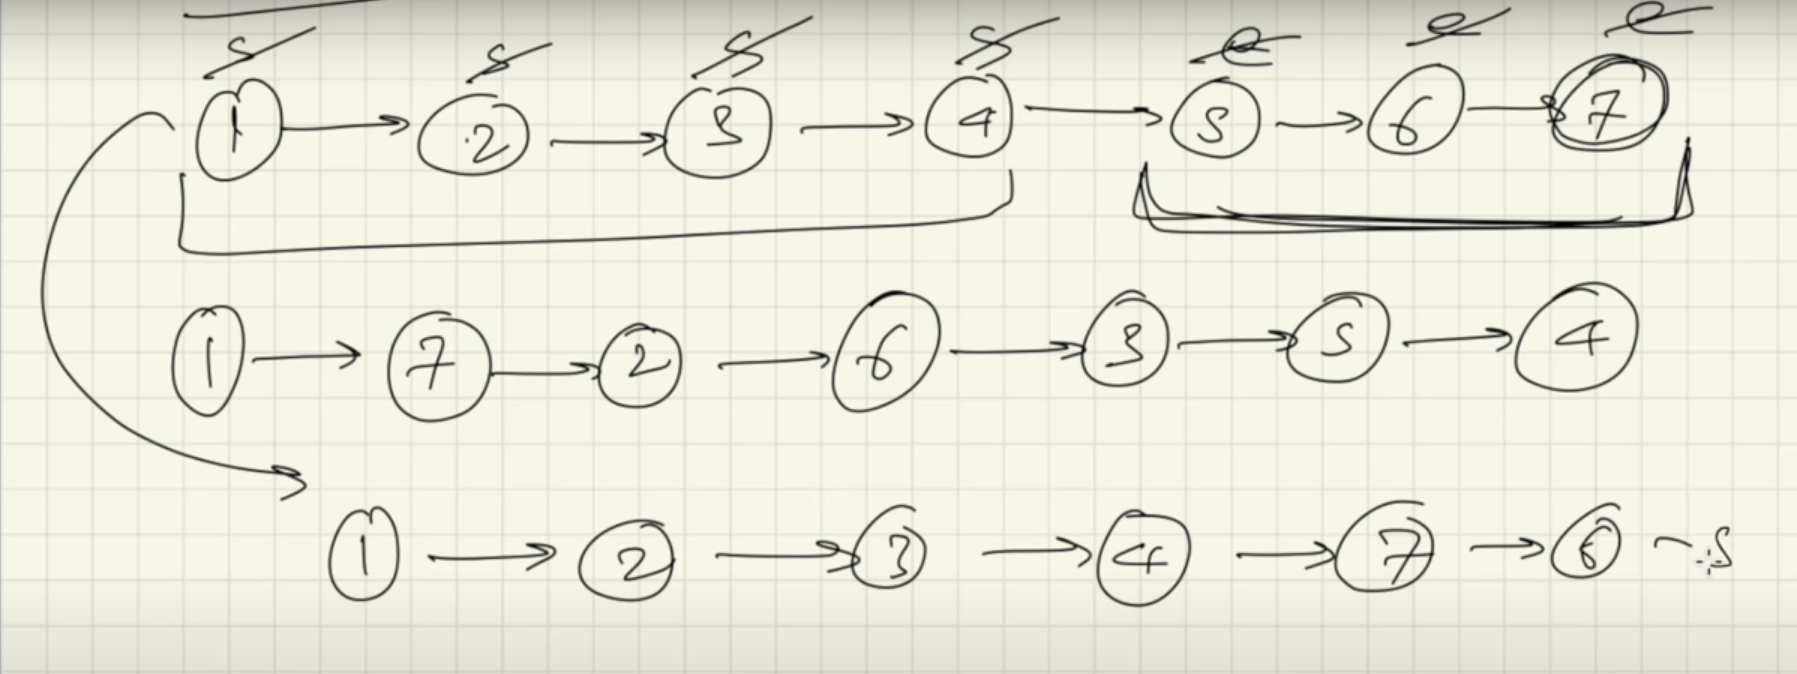 s s s s e e e
1 → 2 → 3 → 4 → 5 → 6 → 7
1 → 7 → 2 → 6 → 3 → 5 → 4
1 → 2 → 3 → 4 → 7 → 6 → 5